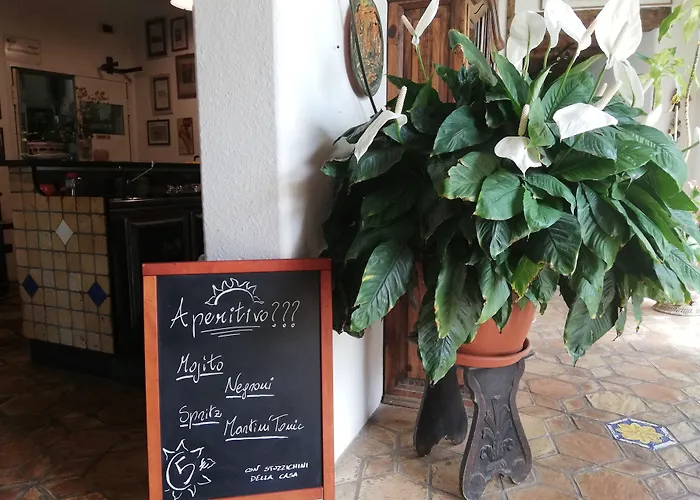 Aperitivo???
Mojito
Negroni
Spritz
Martini Tonic
5€
CON STUZZICHINI
DELLA CASA